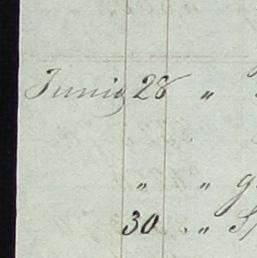 Juniy 28 "
" "
30 "